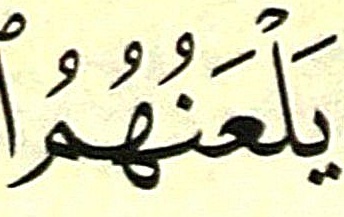 يَلْعَنُهُمُ ٱ